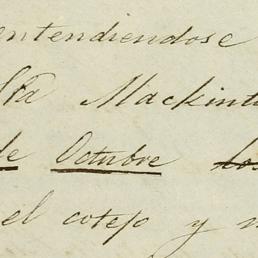 entendiendose
Sta Mackint
de Octubre los
el cotejo y